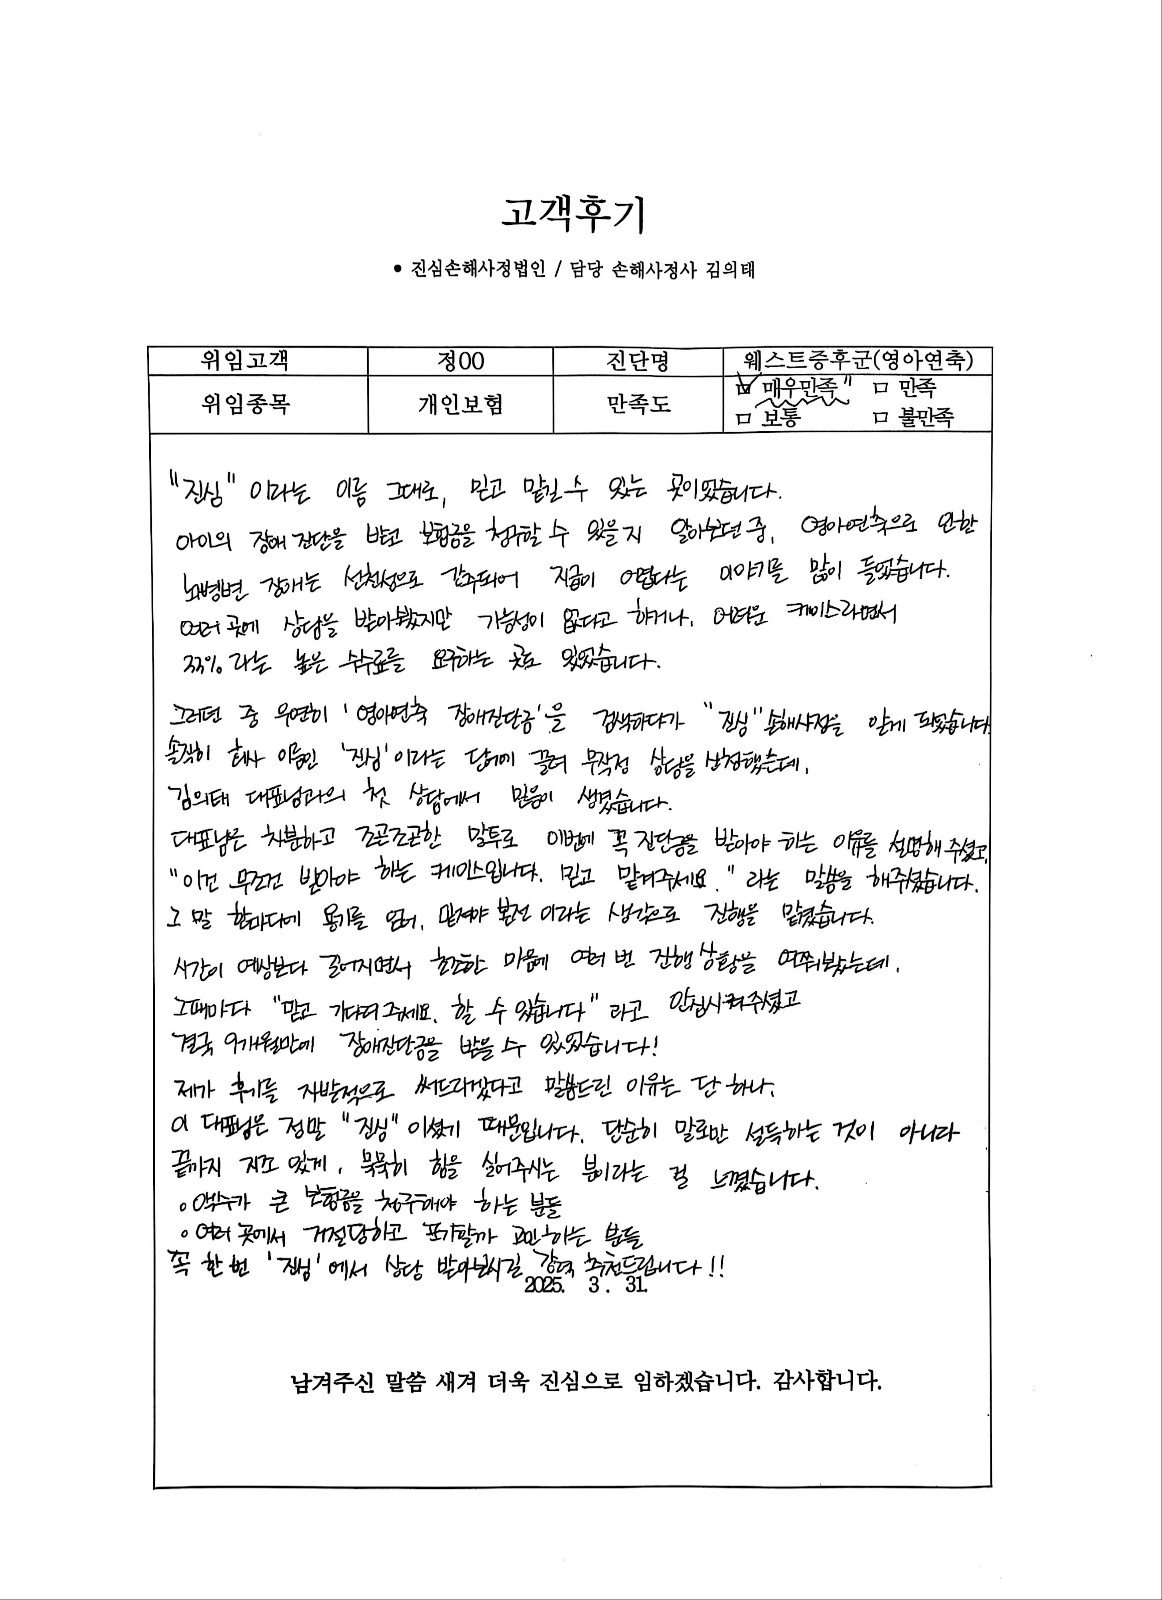 고객후기
• 진심손해사정법인 / 담당 손해사정사 김의태
위임고객 정00 진단명 웨스트증후군(영아연축)
위임종목 개인보험 만족도 ☑ 매우만족" □ 만족
□ 보통 □ 불만족
"진심" 이라는 이름 그대로, 믿고 맡길 수 있는 곳이었습니다.
아이의 장애 진단을 받고 보험금을 청구할 수 있을지 알아보던 중, 영아연축으로 인한
뇌병변 장애는 선천성으로 간주되어 지급이 어렵다는 이야기를 많이 들었습니다.
여러 곳에 상담을 받아봤지만 가능성이 없다고 하거나, 어려운 케이스라면서
33%라는 높은 수수료를 요구하는 곳도 있었습니다.
그러던 중 우연히 '영아연축 장애진단금'을 검색하다가 "진심"손해사정을 알게 되었습니다.
솔직히 회사 이름인 '진심'이라는 단어에 끌려 무작정 상담을 신청했는데,
김의태 대표님과의 첫 상담에서 믿음이 생겼습니다.
대표님은 차분하고 조곤조곤한 말투로 이번에 꼭 진단금을 받아야 하는 이유를 설명해 주셨고,
"이건 무조건 받아야 하는 케이스입니다. 믿고 맡겨주세요." 라는 말씀을 해주셨습니다.
그 말 한마디에 용기를 얻어, 믿져야 본전 이라는 생각으로 진행을 맡겼습니다.
시간이 예상보다 길어지면서 초조한 마음에 여러 번 진행상황을 여쭤봤는데,
그때마다 "믿고 기다려주세요. 할 수 있습니다" 라고 안심시켜주셨고
결국 9개월만에 장애진단금을 받을 수 있었습니다!
제가 후기를 자발적으로 써드리겠다고 말씀드린 이유는 단 하나,
이 대표님은 정말 "진심"이셨기 때문입니다. 단순히 말로만 설득하는 것이 아니라
끝까지 지조 있게, 묵묵히 힘을 실어주시는 분이라는 걸 느꼈습니다.
○ 액수가 큰 보험금을 청구해야 하는 분들
○ 여러 곳에서 거절당하고 포기할까 고민하는 분들
꼭 한번 '진심'에서 상담 받아보시길 강력 추천드립니다!!
2025. 3. 31.
남겨주신 말씀 새겨 더욱 진심으로 임하겠습니다. 감사합니다.